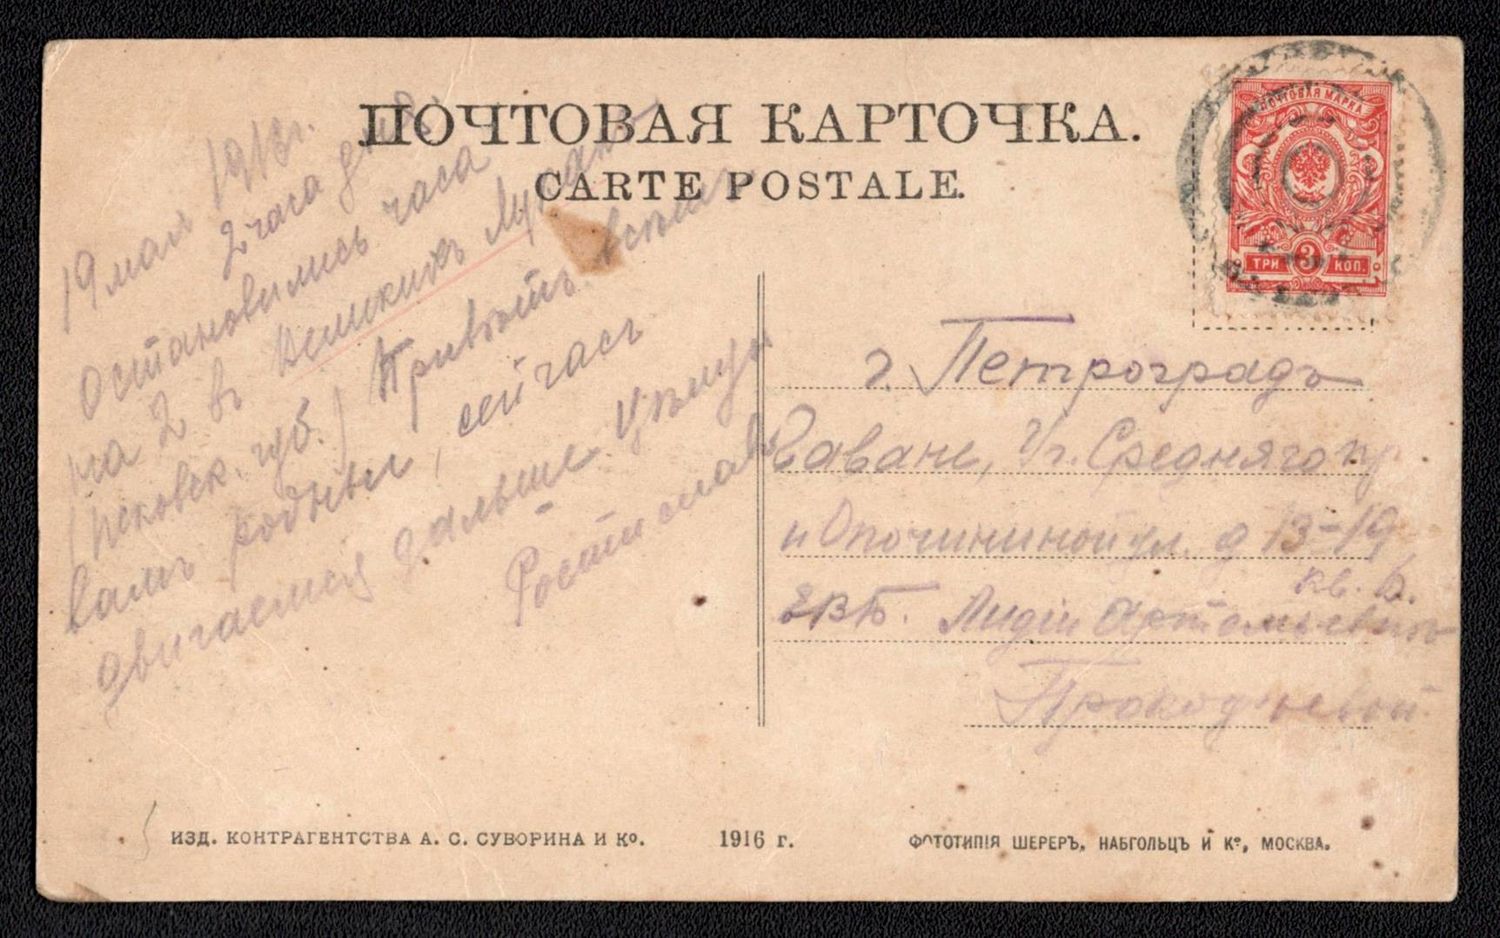 ПОЧТОВАЯ КАРТОЧКА.
CARTE POSTALE.
ПОЧТОВАЯ МАРКА
3
ТРИ КОП.
19 мая 191
2 часа дня.
Остановились часа
на 2 в Великихъ Лу
(псковск. губ.) Привѣтъ всѣмъ
вамъ родные, сейчасъ
двигаемся дальше. Цѣлую
Ростиславъ
г. Петроградъ
Гавань, Уг. Средняго пр.
и Опочининой ул. д 13-19
кв. 6.
ЕВБ. Лидіи Артемьевнѣ
Прокофьевой
ИЗД. КОНТРАГЕНТСТВА А. С. СУВОРИНА И Ко. 1916 г. ФОТОТИПІЯ ШЕРЕРЪ, НАБГОЛЬЦЪ И Ко, МОСКВА.